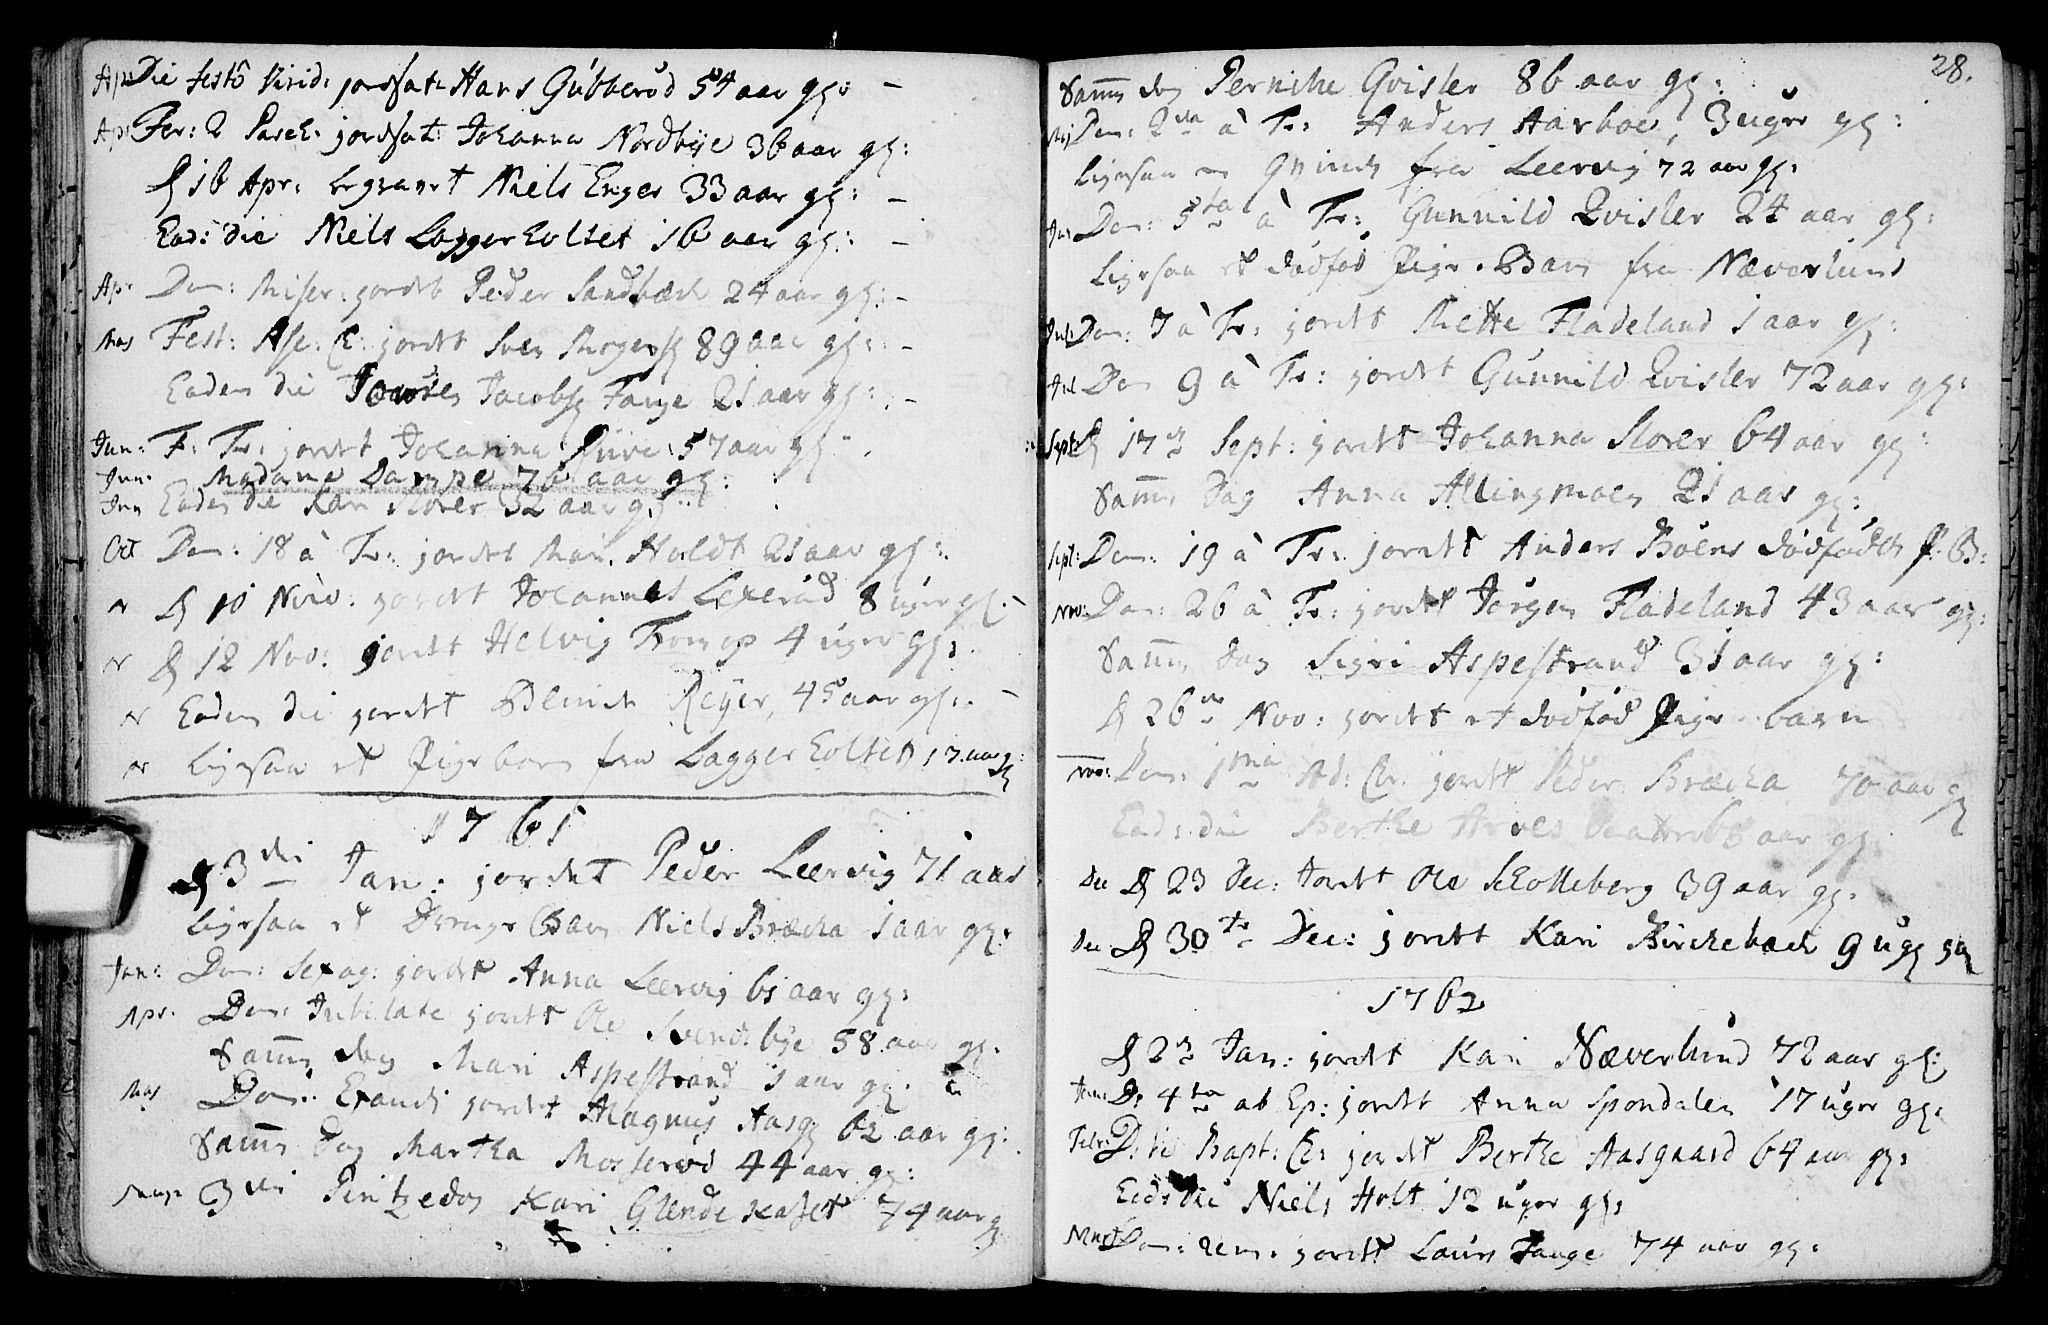 Apr Die festo Virid: jordsat Hans Gubberød 54 aar gl: –
Apr Fer: 2 Pasch: jordsat Johanna Nordbye 36 aar gl:
d 16 Apr: begravet Niels Enger 33 aar gl: –
Ead: die Niels Laggerholtet 16 aar gl: –
Apr Dom: Miser: jordet Peder Sandbæch 24 aar gl: –
Maj Fest: Asc. C: jordet Sven Mogens 89 aar gl: –
Eadem die Jacobs Tange 21 aar gl: –
Jun: F: Tr: jordet Johanna 57 aar gl
Jun: Madame Dampe 76 aar gl:
Jun Eadem die Kari Slorer 32 aar gl:
Oct Dom: 18 à Tr: jordet Mari Holdt 21 aar gl:
N d 10 Nov: jordet Johannes Lexerud 8 uger gl:
N d 12 Nov: jordet Helvig Tromop 4 uger gl:
N Eadem die jordet Reyer, 45 aar gl: –
N ligesaa et Pigebarn fra Laggerholtet 13 aar gl:
1761
d 3die Jan: jordet Peder Leervig 71 aar
ligesaa et Drenge Barn Niels Bræcha 1 aar gl:
Jan: Dom: Sexag: jordet Anna Leervig 61 aar gl:
Apr. Dom: Jubilate jordet Ole Svendsbye 58 aar gl:
Samme dag Mari Aspestrand 1 aar gl:
Maj Dom: Exaudi jordet Magnus Aasg 62 aar gl:
Samme Dag Martha Mosserød 44 aar gl:
3die Pintzedag Kari Glende 74 aar gl
28.
Samme dag Pernihe Qvisler 86 aar gl:
Maj Dom: 2da à Tr: Anders Aarboe, 3 uger gl:
ligesaa en Qvinde fra Leervig 72 aar gl:
Jun Dom: 5ta à Tr: Gunnild Qvisler 24 aar gl:
ligesaa et dødfød Pige-Barn fra Næverlund
Jul: Dom: 7 à Tr: jordet Mette Fladeland 1 aar gl:
Jul Dom 9 à Tr: jordet Gunnild Qvisler 72 aar gl:
Sept: d 17de Sept: jordet Johanna Slorer 64 aar gl:
Samme Dag Anna Allingmoen 21 aar gl:
Sept: Dom: 19 à Tr: jordet Anders Boens dødfødde P. B:
Nov: Dom: 26 à Tr: jordet Jørgen Fladeland 43 aar gl:
Samme dag Sigri Aspestrand 31 aar gl:
d 26de Nov: jordet et dødfød Pige-barn
Nov: Dom: 1ma Ad: Chr: jordet Peder Bræcha 70 aar gl
Ead: die Berthe aar gl:
Dec d 23 Dec: jordet Ole Scholleberg 39 aar gl:
Dec d 30te Dec: jordet Kari Birchebæch 9 ug gl
1762
d 2de Jan: jordet Kari Næverlund 72 aar gl:
Jan: D: 4ta ab Ep: jordet Anna Spondalen 17 uger gl:
Febr: Bapt: C: jordet Berthe Aasgaard 64 aar gl:
Ead: die Niels Holt 12 uger gl:
Mart Dom: rem: jordet Laurs Tange 74 aar gl: